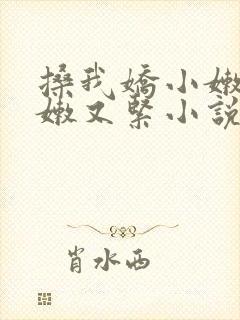 搡我嬌小嫩
嫩又緊小說
肖水西